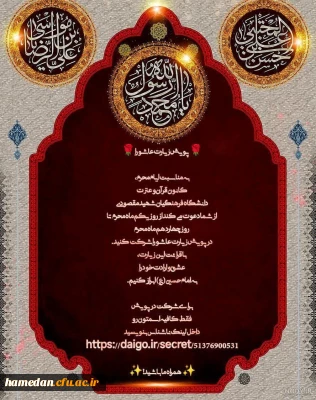 یا محمد رسول الله
🌹 پویش زیارت عاشورا 🌹
به مناسبت ایام محرم،
کانون قرآن و عترت
دانشگاه فرهنگیان شهید مقصودی
از شما دعوت می کند از روز یکم ماه محرم تا
روز چهاردهم ماه محرم
در پویش زیارت عاشورا شرکت کنید.
با قرائت این زیارت،
عشق و ارادت خود را
به امام حسین (ع) ابراز کنیم.
برای شرکت در پویش
فقط کافیه اسمتون رو
داخل لینک ناشناس بنویسید
https://daigo.ir/secret/51376900531
✨ همراه ما باشید! ✨
hamedan.cfu.ac.ir